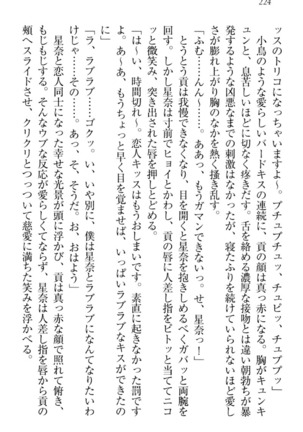 224
ッスのトリコになっちゃいますよ~。ブチュブチュッ、チュピッ、チュププッ」
小鳥のような愛らしいバードキスの連続に、貢の顔は真っ赤になる。胸がキュンキ
ュンと、息苦しいほどに切なく疼きだす。舌を絡める濃厚な接吻とは違い朝勃ちが暴
発するような凶悪なまでの刺激はなかったが、寝たふりを続けていられないほど愛し
さが膨れ上がり胸のなかを熱く掻き乱す。
「ふむ……んん~……。ああっ、もうガマンできないっ。せ、星奈っ!」
とうとう貢は我慢できなくなり、目を開くと星奈を抱きしめるべくガバッと両腕を
伸ばす。しかし星奈は寸前でヒョイとかわし、貢の唇に人差し指をピトッと当ててニコ
ッと微笑み、突き出された唇を押しとどめる。
「は~い、時間切れ~。恋人キッスはもうおしまいです。素直に起きなかった罰です
よ~。あ~あ、もうちょっと早く目を覚ませば、いっぱいラブラブなキスができたの
になぁ~」
「ラ、ラブラブ……ゴクッ。い、いや別に、僕は星奈とラブラブになんてなりたいわ
けじゃ……その……。あっ、そ、そうだ。お、おはよう」
星奈と恋人同士になった幸せな光景が頭に浮かび、貢は真っ赤な顔で照れて俯き、
もじもじする。そんなウブな反応が愛らしくてならず、星奈は人差し指を唇から貢の
頬へスライドさせ、クリクリとつついて慈愛に満ちた笑みを浮かべる。